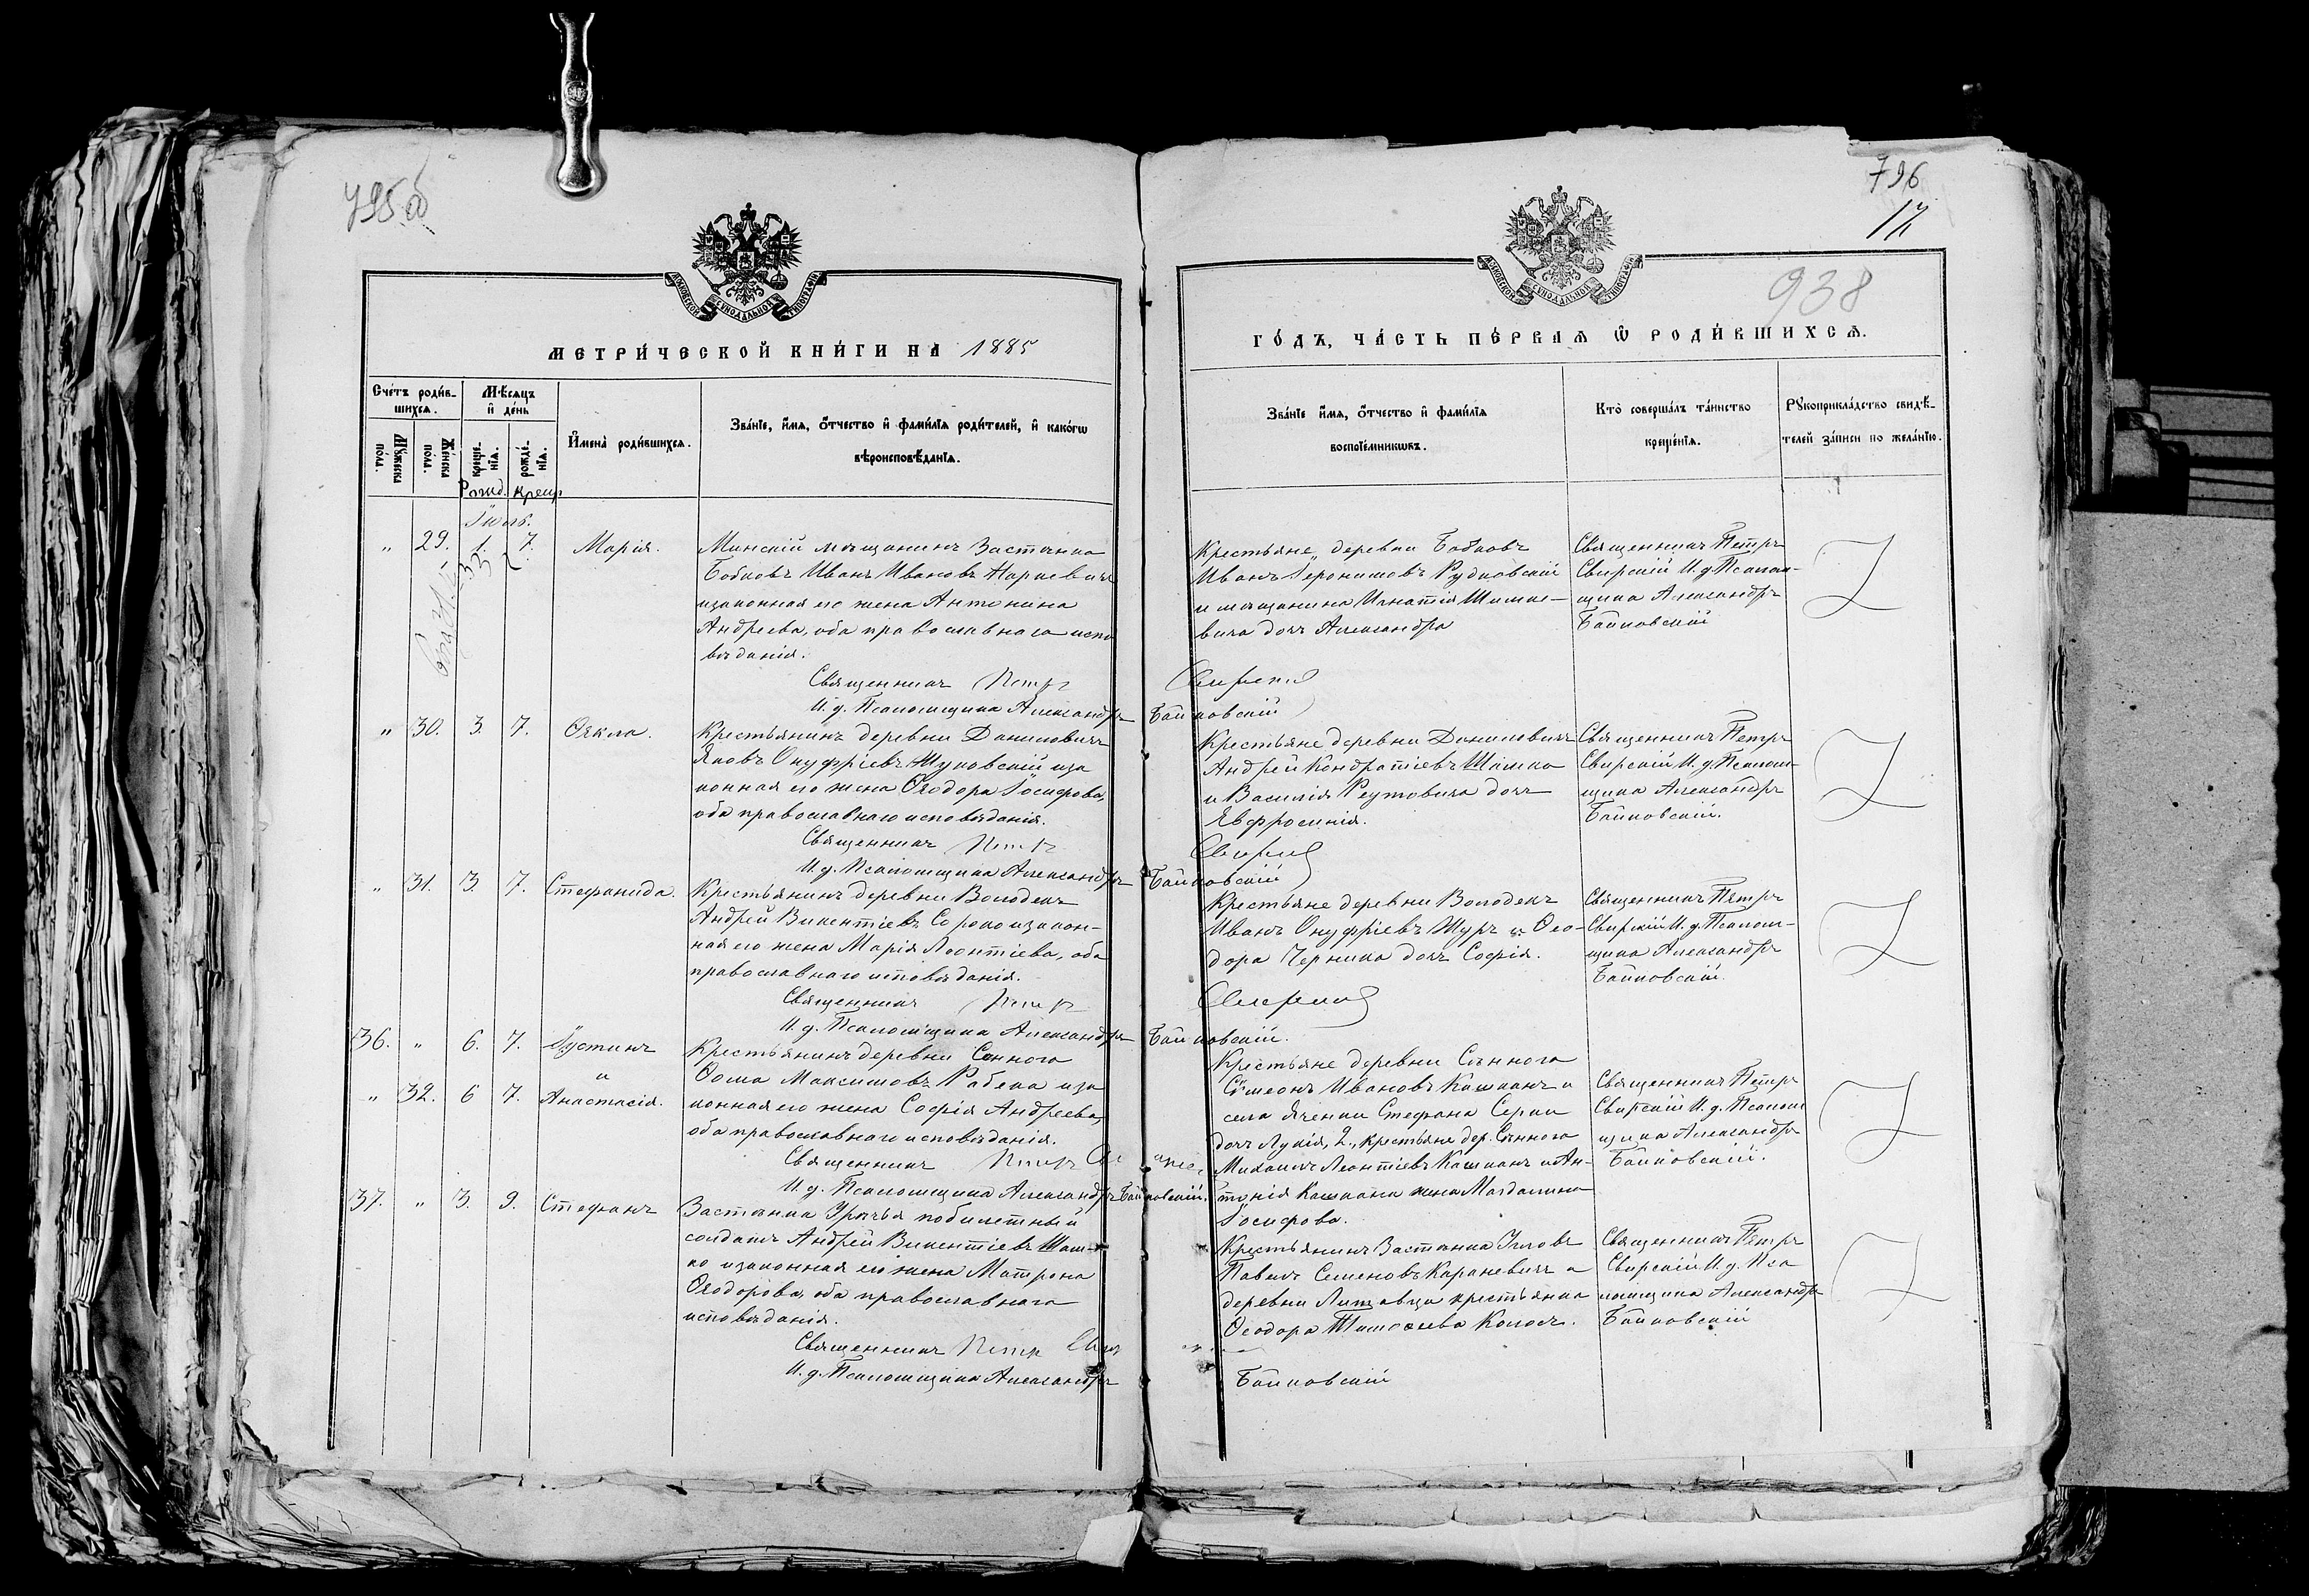 795 об
796
17
938
МОСКОВСКОЙ СѴНОДАЛЬНОЙ ТИПОГРАФІИ
МОСКОВСКОЙ СѴНОДАЛЬНОЙ ТИПОГРАФІИ
МЕТРИ́ЧЕСКОЙ КНИ́ГИ НА 1885
ГО́ДЪ, ЧА́СТЬ ПЕ́РВАѦ Ѿ РОДИ́ВШИХСѦ.
Сче́тъ роди́в-
шихсѧ.
Мѣ́сѧцъ
и҆ де́нь
Мꙋ́жеска по́ла.
Же́нска по́ла.
креще́-
нїѧ.
рожде́-
нїѧ.
И҆мена̀ роди́вшихсѧ.
Зва́нїе, и҆́мѧ, ѻ҆́тчество и҆ фами́лїѧ роди́телей, и҆ како́гѡ
вѣроисповѣ́данїѧ.
Зва́нїе и҆́мѧ, ѻ҆́тчество и҆ фами́лїѧ
воспрїе́мникѡвъ.
Кто̀ соверша́лъ та́инство
креще́нїѧ.
Рꙋкоприкла́дство свидѣ́-
телей за́писи по жела́нїю.
Рожд. Крещ.
Іюль.
" 29. 1. 7. Марія.
Минскій мѣщанинъ Застѣнка
Бобковъ Иванъ Ивановъ Нарневичъ
изаконная его жена Антонина
Андреева, оба православнаго испо
вѣданія.
Священникъ Петръ Свирскій
И. д. Псаломщика Александръ Байковскій
Крестьяне, деревни Бобковъ
Иванъ Іеронимовъ Рудковскій
и мѣщанина Игнатія Шимке-
вича дочь Александра
Священникъ Петръ
Свирскій И. д. Псалом-
щика Александръ
Байковскій
" 30. 3. 7. Ѳекла.
Крестьянинъ деревни Даниловичъ
Яковъ Онуфріевъ Жуковскій иза
конная его жена Ѳеодора Іосифова,
оба православнаго исповѣданія.
Священникъ Петръ Свирскій
И. д. Псаломщика Александръ Байковскій
Крестьяне деревни Даниловичъ
Андрей Кондратіевъ Шимко
и Василія Реутовича дочь
Евфросинія.
Священникъ Петръ
Свирскій И. д. Псалом-
щика Александръ
Байковскій.
" 31. 3. 7. Стефанида.
Крестьянинъ деревни Володекъ
Андрей Викентіевъ Сороко изакон-
ная его жена Марія Леонтіева, оба
православнаго исповѣданія.
Священникъ Петръ Свирскій
И. д. Псаломщика Александръ Байковскій.
Крестьяне деревни Володекъ
Иванъ Онуфріевъ Журъ и Ѳео-
дора Черника дочь Софія.
Священникъ Петръ
Свирскій И. д. Псалом-
щика Александръ
Байковскій.
36. " 6. 7. Іустинъ
и
" 32. 6 7. Анастасія.
Крестьянинъ деревни Сѣннаго
Ѳома Максимовъ Рабека иза
конная его жена Софія Андреева,
оба православнаго исповѣданія.
Священникъ Петръ
И. д. Псаломщика Александръ Байковскій.
Крестьяне деревни Сѣннаго
Сѵмеонъ Ивановъ Кашканъ и
села Ячонки Стефана Серки
дочь Лукія, 2., крестьяне дер. Сѣннаго
Михаилъ Леонтіевъ Кашканъ и Ан-
тонія Кашкана жена Магдалина
Іосифова.
Священникъ Петръ
Свирскій И. д. Псалом
щика Александръ
Байковскій.
37. " 3. 9. Стефанъ
Застѣнка Урѣчья побилетный
солдатъ Андрей Викентіевъ Шаш-
ко изаконная его жена Матрона
Ѳеодорова, оба православнаго
исповѣданія.
Священникъ Петръ
И. д. Псаломщика Александръ Байковскій
Крестьянинъ Застѣнка
Павелъ Семеновъ Караневичъ и
деревни Литовцы крестьянка
Ѳеодора Тимоѳеева Колосъ.
Священникъ Петръ
Свирскій И. д. Пса
ломщика Александръ
Байковскій